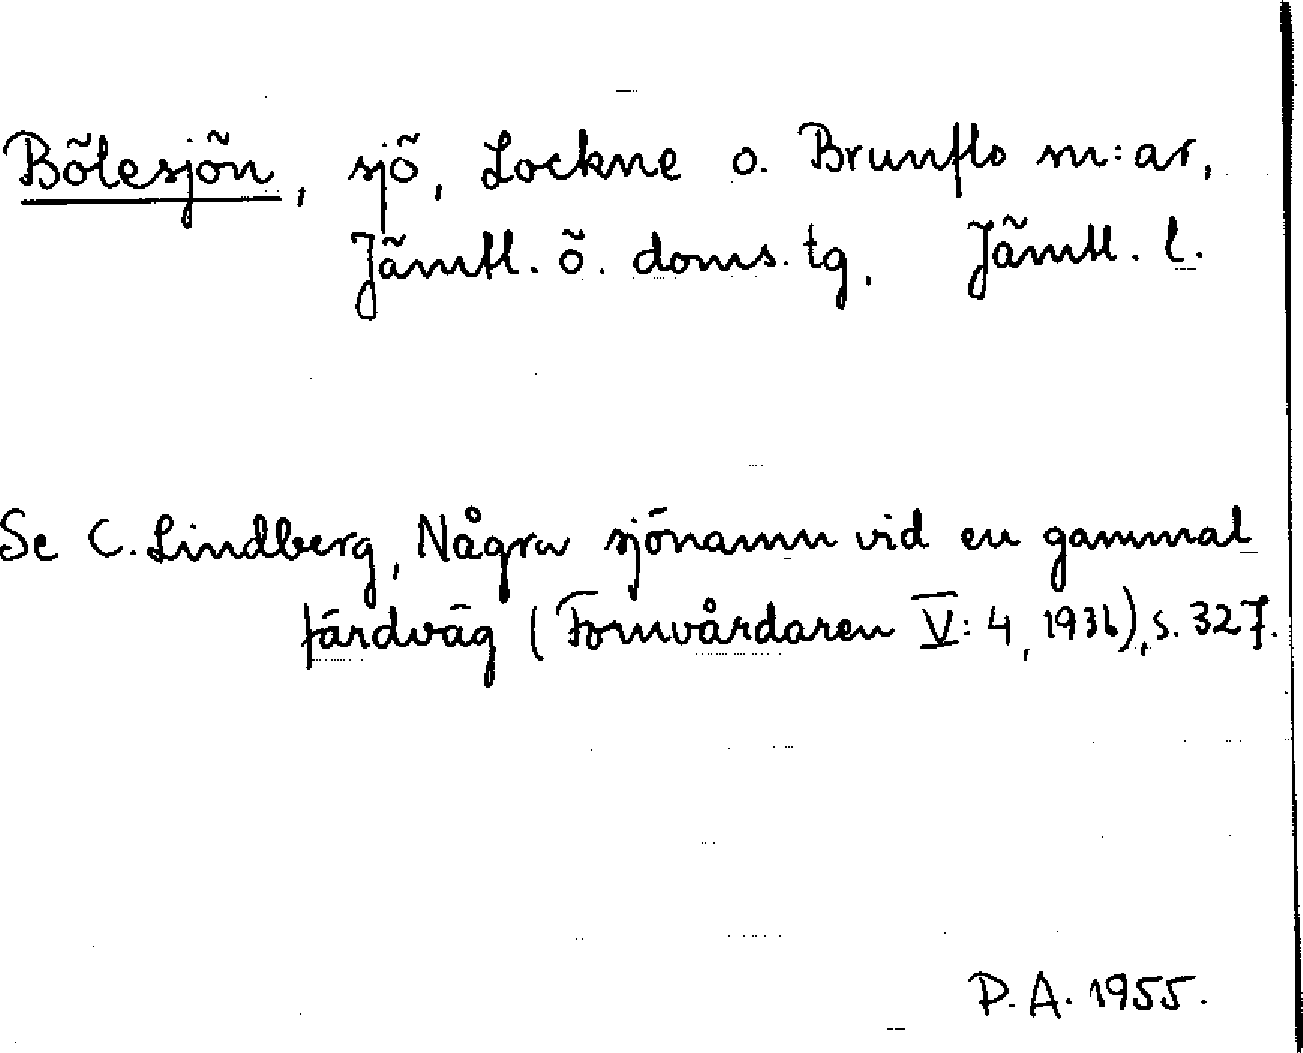 Bölesjön, sjö, Lockne o. Brunflo m:ar,
Jämtl. ö. doms. tg. Jämtl. l.
Se C. Lindberg, Några sjönamn vid en gammal
färdväg (Fornvårdaren V:4, 1936), s. 327.
D.A. 1955.